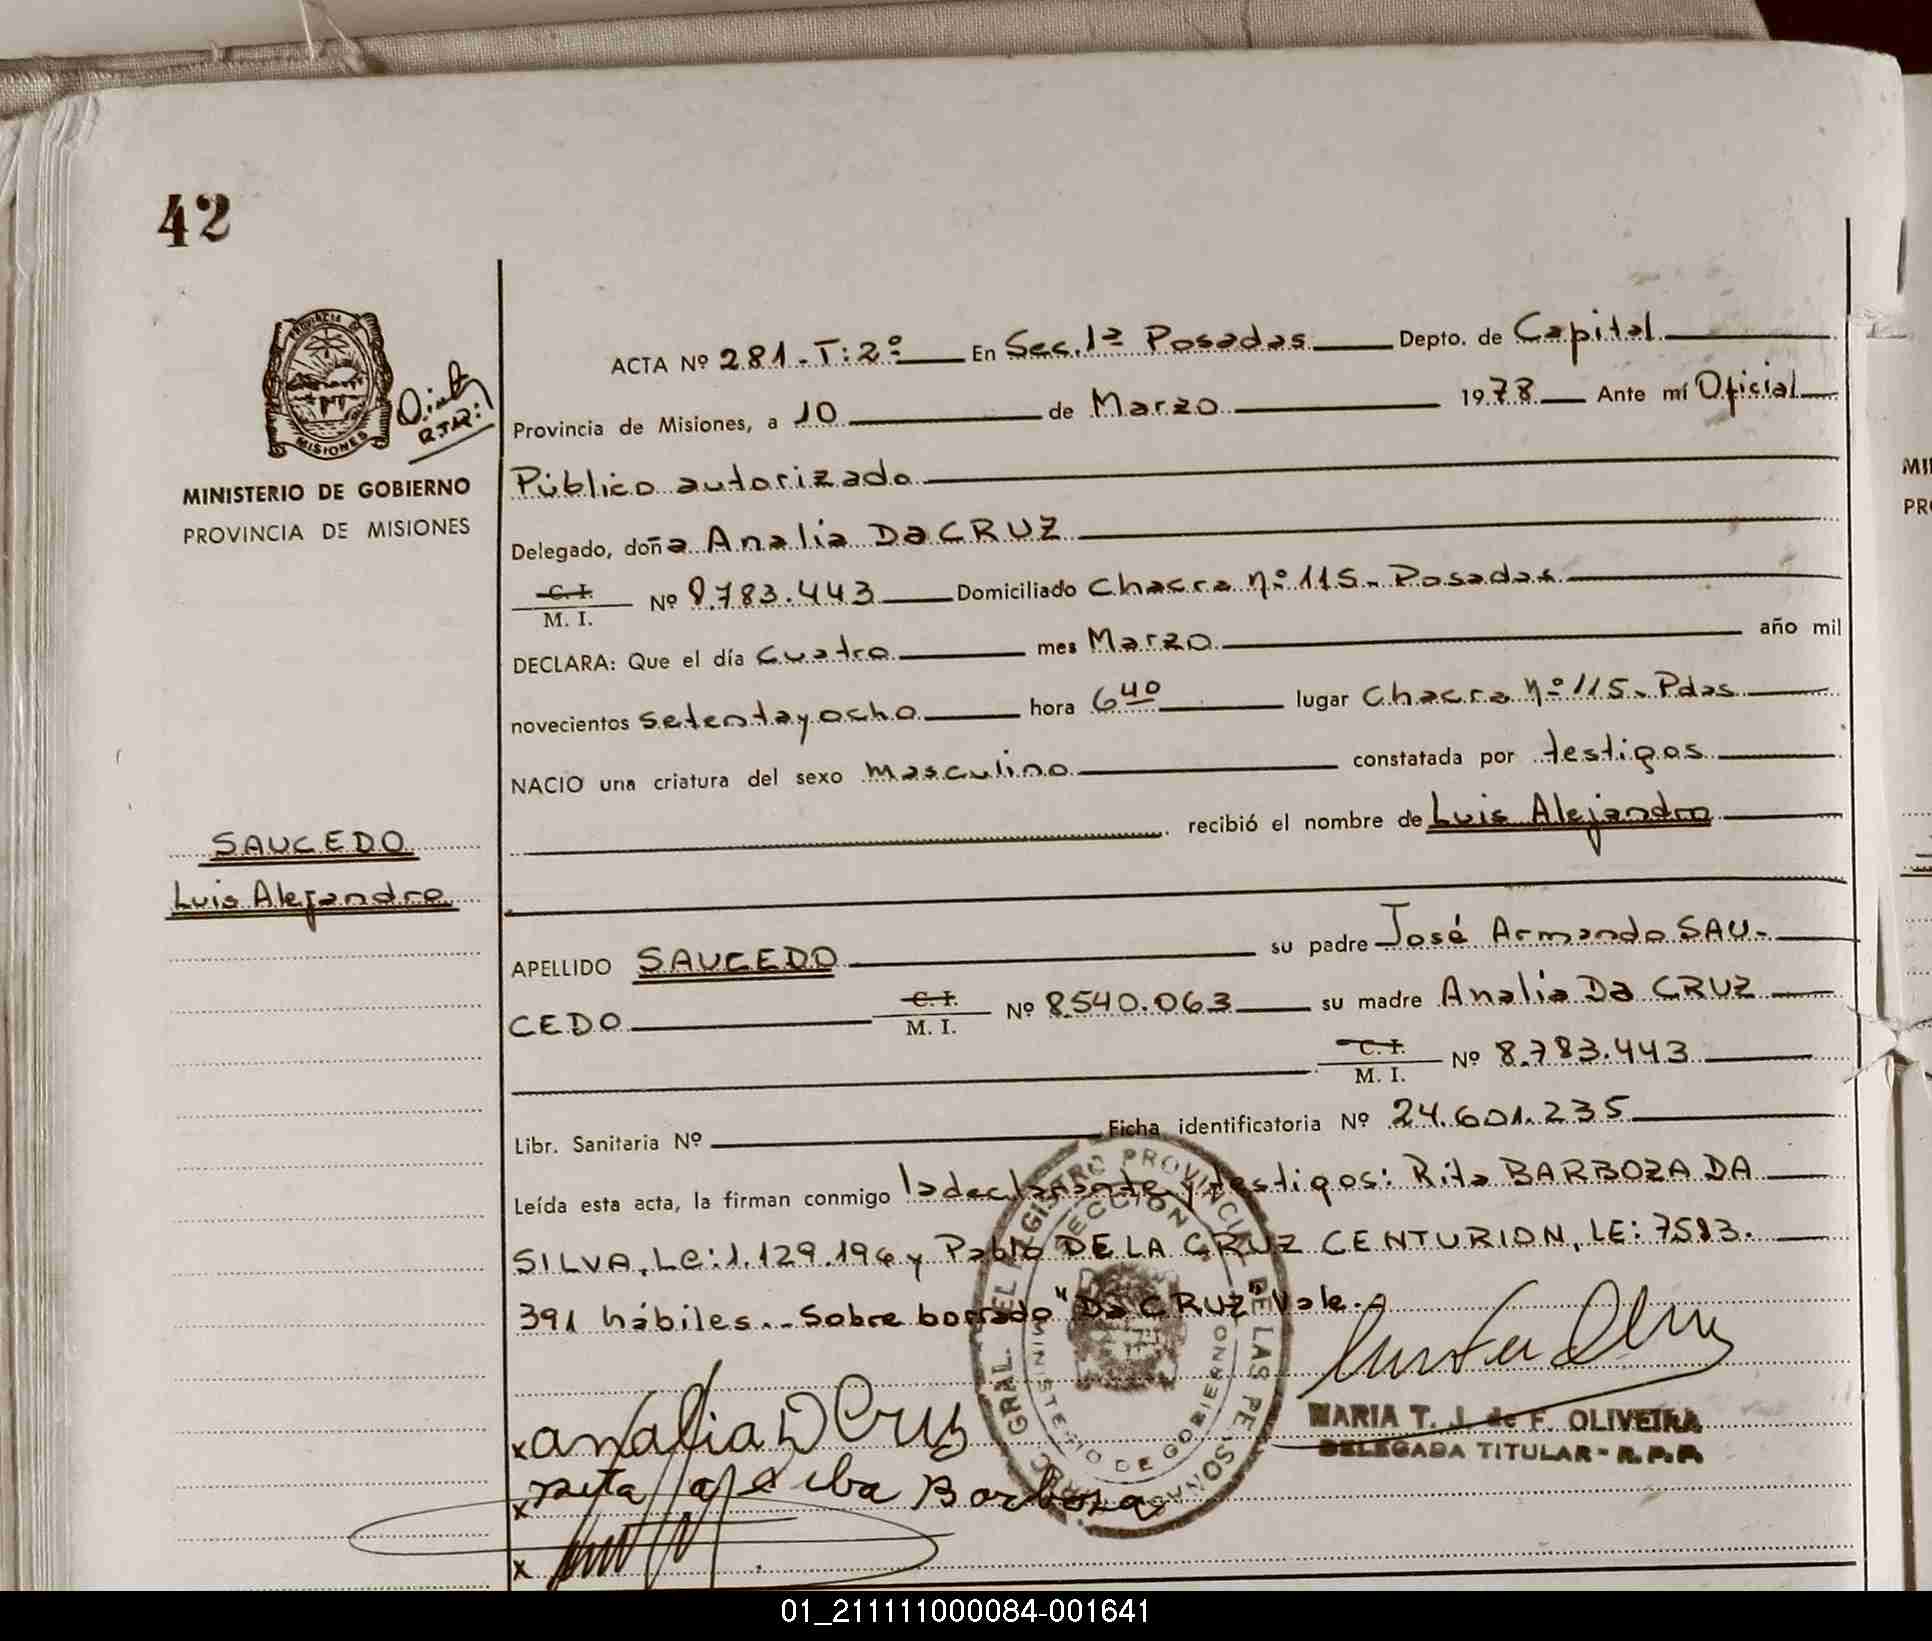 42
PROVINCIA DE
MISIONES
MINISTERIO DE GOBIERNO
PROVINCIA DE MISIONES
SAUCEDO
Luis Alejandro
ACTA Nº 281-T:2º En Sec. 1ª Posadas Depto. de Capital
Provincia de Misiones, a 10 de Marzo 1978 Ante mí Oficial
Público autorizado
Delegado, doña Analia Da CRUZ
C. I. / M. I. Nº 8.783.443 Domiciliado Chacra nº 115- Posadas
DECLARA: Que el día cuatro mes Marzo año mil
novecientos setentayocho hora 6 40 lugar Chacra Nº 115- Pdas
NACIO una criatura del sexo masculino constatada por testigos
recibió el nombre de Luis Alejandro
APELLIDO SAUCEDO su padre José Armando SAU-
CEDO C. I. / M. I. Nº 8.540.063 su madre Analia Da CRUZ
C. I. / M. I. Nº 8.783.443
Libr. Sanitaria Nº Ficha identificatoria Nº 24.601.235
Leída esta acta, la firman conmigo la declarante y testigos: Rita BARBOZA DA
SILVA, LC: 1.129.194 y Pablo DE LA CRUZ CENTURION, LE: 7583.
391 hábiles.- Sobre borrado "Da CRUZ" Vale.-
x analia D Cruz
x Barboza
x
GRAL. DEL REGISTRO PROVINCIAL DE LAS PERSONAS
DIRECCION
MINISTERIO DE GOBIERNO
MARIA T. J. de F. OLIVEIRA
DELEGADA TITULAR - R.P.P.
01_211111000084-001641